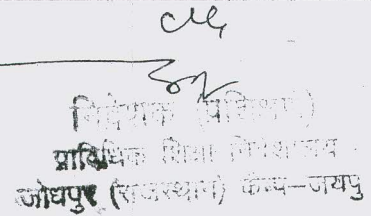 निदेशक (प्रशिक्षण)
प्राविधिक शिक्षा निदेशालय
जोधपुर (राजस्थान) कैम्प-जयपु